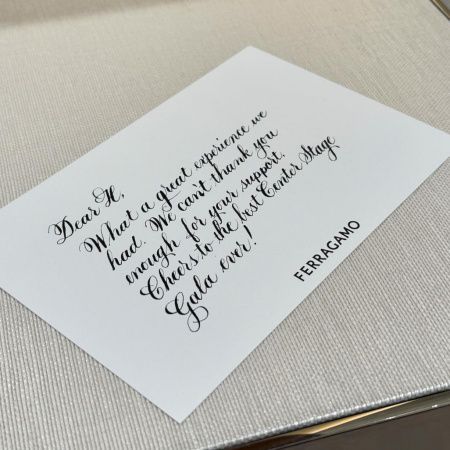 Dear H,
What a great experience we
had. We can't thank you
enough for your support.
Cheers to the best Center Stage
Gala ever!
FERRAGAMO